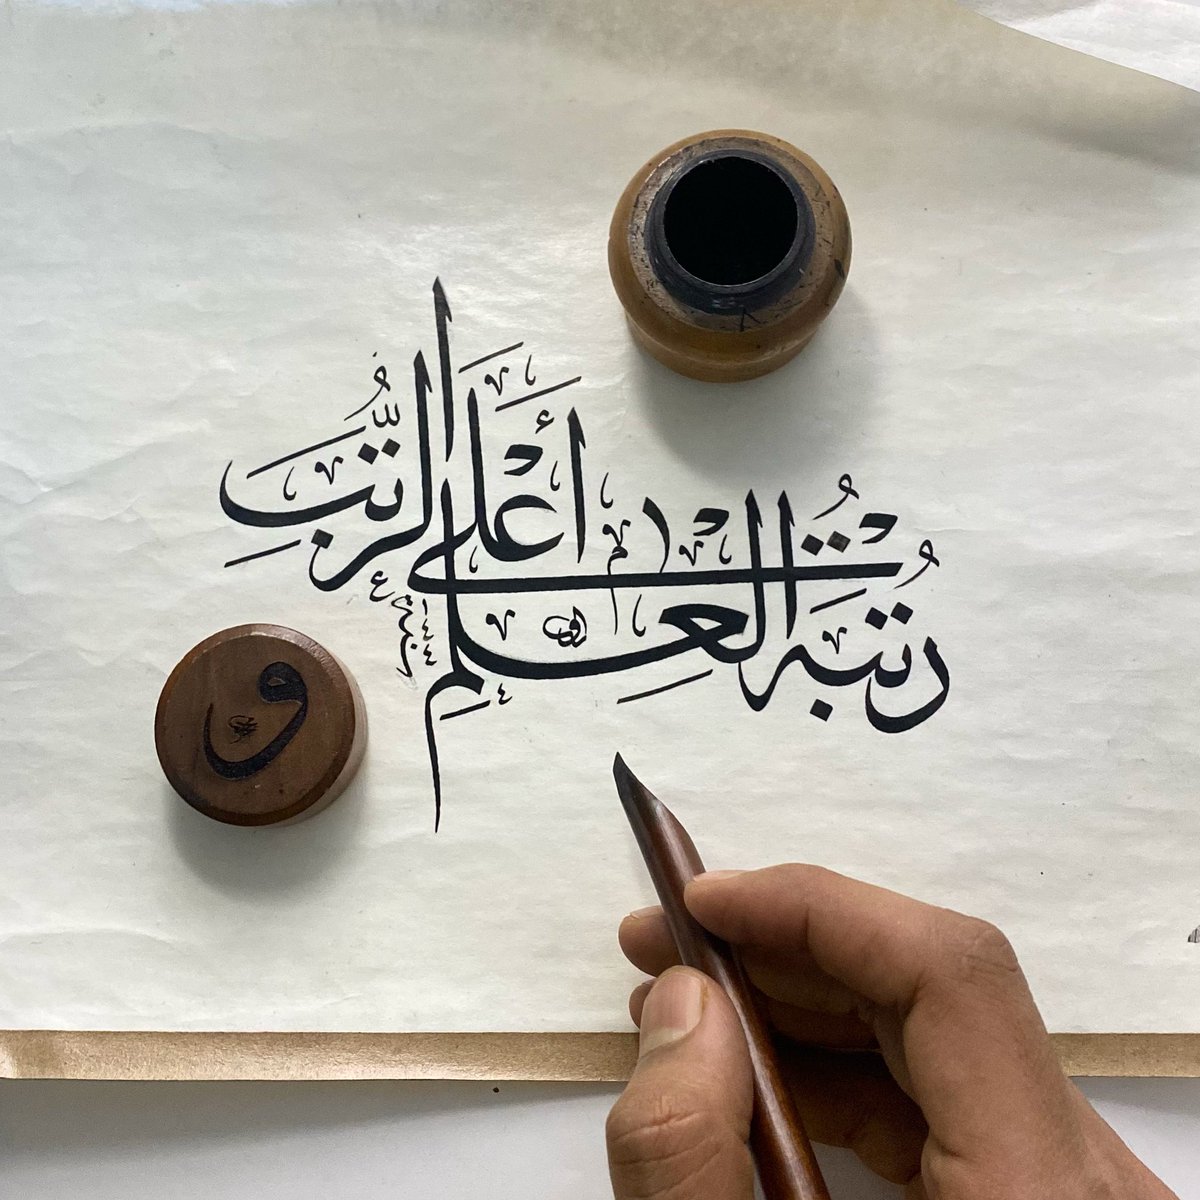 رُتْبَةُ الْعِلْمِ أَعْلَى الرُّتَبِ
و